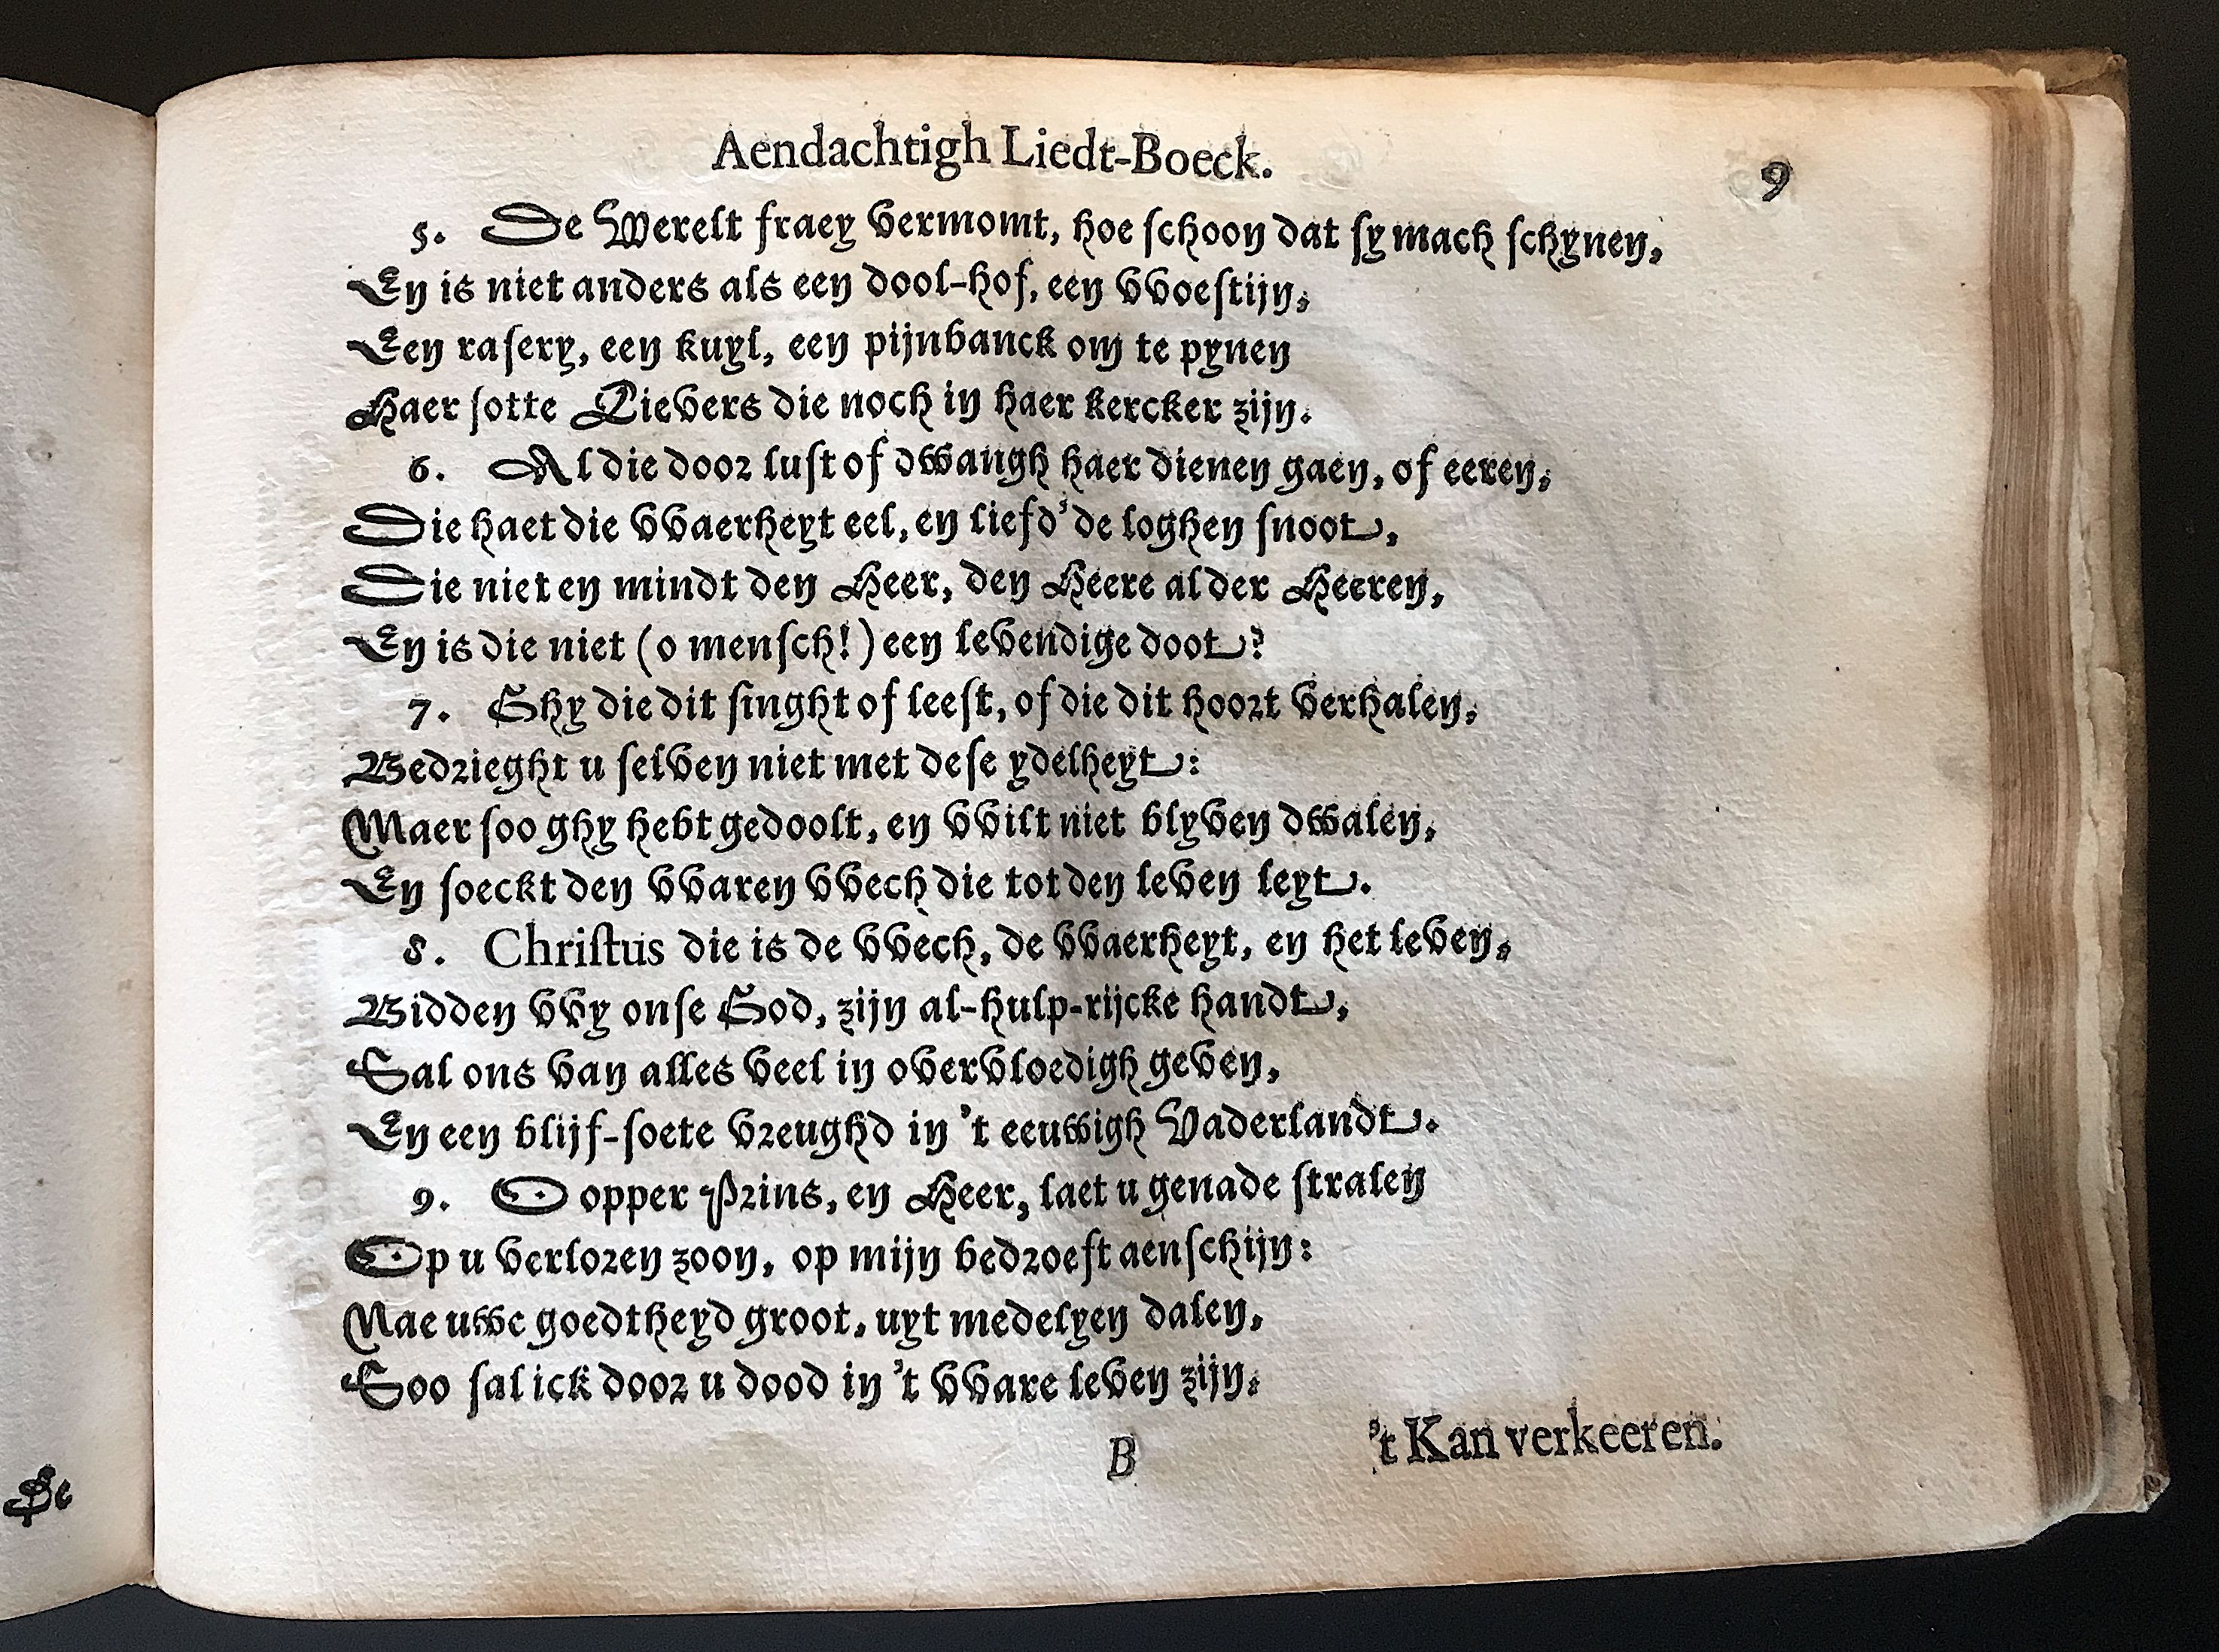 Aendachtigh Liedt-Boeck.
9
5. De Werelt fraey vermomt, hoe schoon dat sy mach schynen,
En is niet anders als een dool-hof, een vvoestijn,
Een rasery, een kuyl, een pijnbanck om te pynen
Haer sotte Lievers die noch in haer kercker zijn.
6. Al die door lust of dwangh haer dienen gaen, of eeren,
Die haet die vvaerheyt eel, en liefd' de loghen snoot,
Die niet en mindt den Heer, den Heere al der Heeren,
En is die niet (o mensch!) een levendige doot?
7. Ghy die dit singht of leest, of die dit hoort verhalen,
Bedrieght u selven niet met dese ydelheyt:
Maer soo ghy hebt gedoolt, en vvilt niet blyven dwalen,
En soeckt den vvaren vvech die tot den leven leyt.
8. Christus die is de vvech, de vvaerheyt, en het leven,
Bidden vvy onse God, zijn al-hulp-rijcke handt,
Sal ons van alles veel in overvloedigh geven,
En een blijf-soete vreughd in 't eeuwigh Vaderlandt.
9. O opper Prins, en Heer, laet u genade stralen
Op u verloren zoon, op mijn bedroeft aenschijn:
Nae uwe goedtheyd groot, uyt medelyen dalen,
Soo sal ick door u dood in 't vvare leven zijn.
B
't Kan verkeeren.
Be